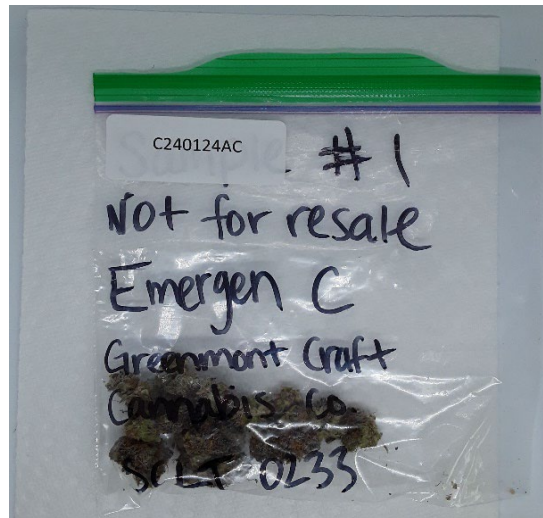 C240124AC
Sample #1
Not for resale
Emergen C
Greenmont Craft
Cannabis Co.
SCLT 0233